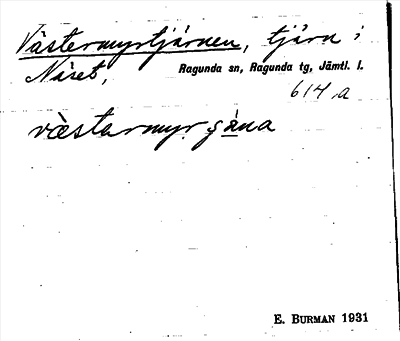 Västermyrtjärnen, tjärn i
Näset, Ragunda sn, Ragunda tg, Jämtl. l.
614 a
væstermyr
E. BURMAN 1931